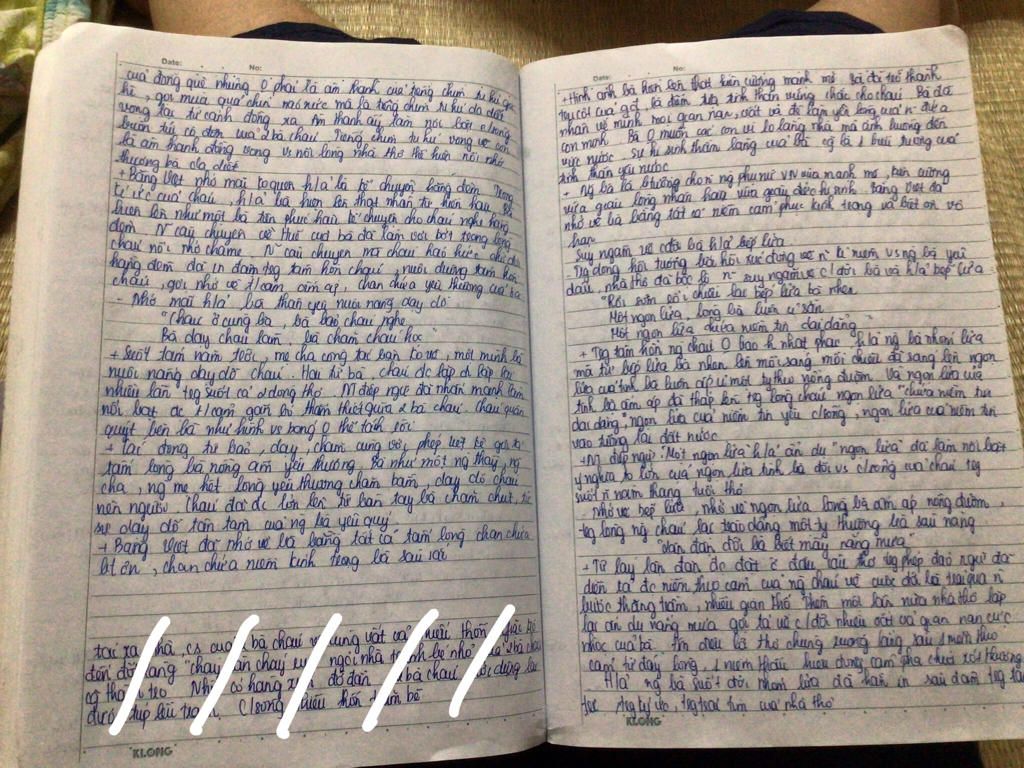 Date: No:
của đồng quê nhưng 0 phải là âm thanh của tiếng chim tu hú gọi
hè, gọi mùa quả chín náo nức mà là tiếng chim tu hú da diết
vọng lại từ cánh đồng xa. Âm thanh ấy làm nổi bật
buồn tủi cô đơn của 2 bà cháu. Tiếng chim tu hú vọng về còn
là âm thanh đồng vọng vs nỗi lòng nhà thơ thể hiện nỗi nhớ
thương bà da diết
+ Bằng Việt nhớ mãi h/ả là kể chuyện hàng đêm. Trong
kí ức của cháu, h/ả bà hiện lên thật nhân từ hiền hậu. Bà
hiện lên như một bà tiên phúc hậu kể chuyện cho cháu nghe hàng
đêm. N câu chuyện về Huế của bà đã làm vơi bớt trong lòng
cháu nỗi nhớ cha mẹ. N câu chuyện mà cháu háo hức chờ đợi
hàng đêm đã in đậm trg tâm hồn cháu, nuôi dưỡng tâm hồn
cháu, gợi nhớ về t/cảm ấm áp, chan chứa yêu thương của bà
- Nhớ mãi h/ả bà thân yêu nuôi nấng dạy dỗ
"Cháu ở cùng bà, bà bảo cháu nghe
Bà dạy cháu làm, bà chăm cháu học"
+ Suốt tám năm ròng, mẹ cha công tác bận ko về, một mình bà
nuôi nấng dạy dỗ cháu. Hai từ bà, cháu đc lặp đi lặp lại
nhiều lần trg suốt cả 2 dòng thơ. N điệp ngữ đã nhấn mạnh làm
nổi bật đc t/cảm gắn bó thắm thiết giữa 2 bà cháu. Cháu quấn
quýt bên bà như hình vs bóng 0 thể tách rời
+ Các động từ bảo, dạy, chăm cùng với phép liệt kê gợi tả
tấm lòng bà nồng ấm yêu thương. Bà như một ng thầy, ng
cha, ng mẹ hết lòng yêu thương chăm bẵm, dạy dỗ cháu
nên người. Cháu đã đc lớn lên từ bàn tay bà chăm chút, từ
sự dạy dỗ tận tâm của ng bà yêu quý
+ Bằng Việt đã nhớ về bà bằng tất cả tấm lòng chan chứa
biết ơn, chan chứa niềm kính trọng bà sâu sắc
KLONG
Date: No:
+ Hình ảnh bà hiện lên thật kiên cường mạnh mẽ. Bà đã trở thành
trụ cột của gđ, là điểm tựa tinh thần vững chắc cho cháu. Bà đã
nhận về mình mọi gian nan, vất vả để làm yên lòng của n đứa
con mình. Bà 0 muốn các con vì lo lắng nhà mà ảnh hưởng đến
việc nước. Sự hi sinh thầm lặng của bà cg là 1 biểu tượng của
tinh thần yêu nước
+ Ng bà là b/tượng cho n ng phụ nữ VN vừa mạnh mẽ, kiên cường
vừa giàu lòng nhân hậu vừa giàu đức hi sinh. Bằng Việt đã
nhớ về bà bằng tất cả niềm cảm phục kính trọng và biết ơn vô
hạn
Suy ngẫm về c/đời bà h/ả bếp lửa
- Ng dòng hồi tưởng bồi hồi xúc động về n kỉ niệm vs ng bà yêu
dấu, nhà thơ đã bộc lộ n suy ngẫm về c/đời bà và h/ả bếp lửa
"Rồi sớm rồi chiều lại bếp lửa bà nhen
Một ngọn lửa, lòng bà luôn ủ sẵn
Một ngọn lửa chứa niềm tin dai dẳng"
+ Trg tâm hồn ng cháu 0 bao h nhạt phai h/ả ng bà nhóm lửa
mà từ bếp lửa bà nhen lên mỗi sáng mỗi chiều đã sáng lên ngọn
lửa của tình bà luôn ấp ủ một ty thương nồng đượm. Và ngọn lửa của
tình bà ấm áp đã thắp lên trg lòng cháu ngọn lửa "chứa niềm tin
dai dẳng", ngọn lửa của niềm tin yêu c/sống, ngọn lửa của niềm tin
vào tương lai đất nước
+ N điệp ngữ "Một ngọn lửa" h/ả ẩn dụ "ngọn lửa" đã làm nổi bật
ý nghĩa to lớn của ngọn lửa tình bà đối vs c/sống của cháu trg
suốt n năm tháng tuổi thơ
- Nhớ về bếp lửa, nhớ về ngọn lửa lòng bà ấm áp nồng đượm,
trg lòng ng cháu lại trào dâng một ty thương bà sâu nặng
"Lận đận đời bà biết mấy nắng mưa"
+ Từ láy lận đận đc đặt ở đầu câu thơ trg phép đảo ngữ đã
diễn tả đc niềm thấu cảm của ng cháu về cuộc đời bà trải qua n
bước thăng trầm, nhiều gian khổ. Thêm một lần nữa nhà thơ lặp
lại ẩn dụ nắng mưa gợi tả về c/đời nhiều vất vả gian nan cực
nhọc của bà. Âm điệu lời thơ chùng xuống lắng sâu 1 niềm thấu
cảm từ đáy lòng, 1 niềm thấu hiểu đồng cảm pha chút xót thương
H/ả ng bà suốt đời nhóm lửa đã hằn in sâu đậm trg tâm
trg ký ức, trg trái tim của nhà thơ
KLONG